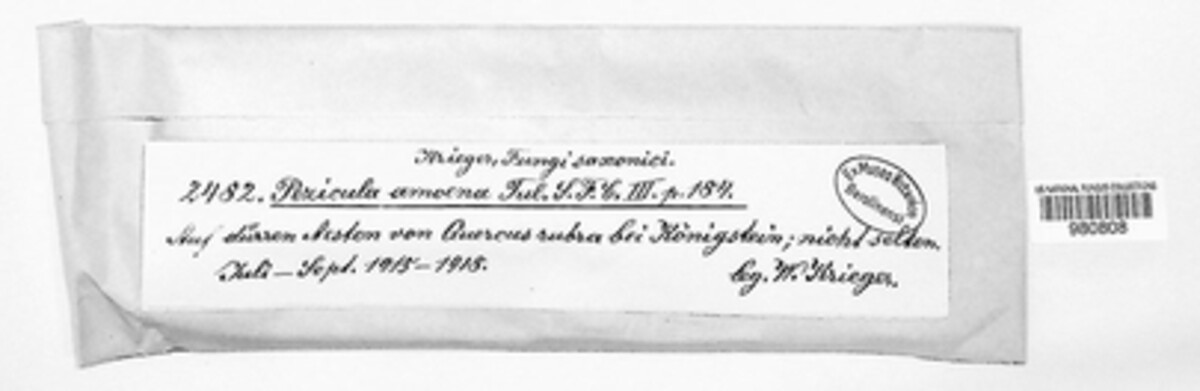 Krieger, Fungi saxonici.
2482. Pezicula amoena Tul. S.F.C. III. p. 184.
Auf dürren Ästen von Quercus rubra bei Königstein; nicht selten.
Juli – Sept. 1915 – 1918.
leg. W. Krieger.
Ex Museo Botanico
Berolinensi
US NATIONAL FUNGUS COLLECTIONS
980808